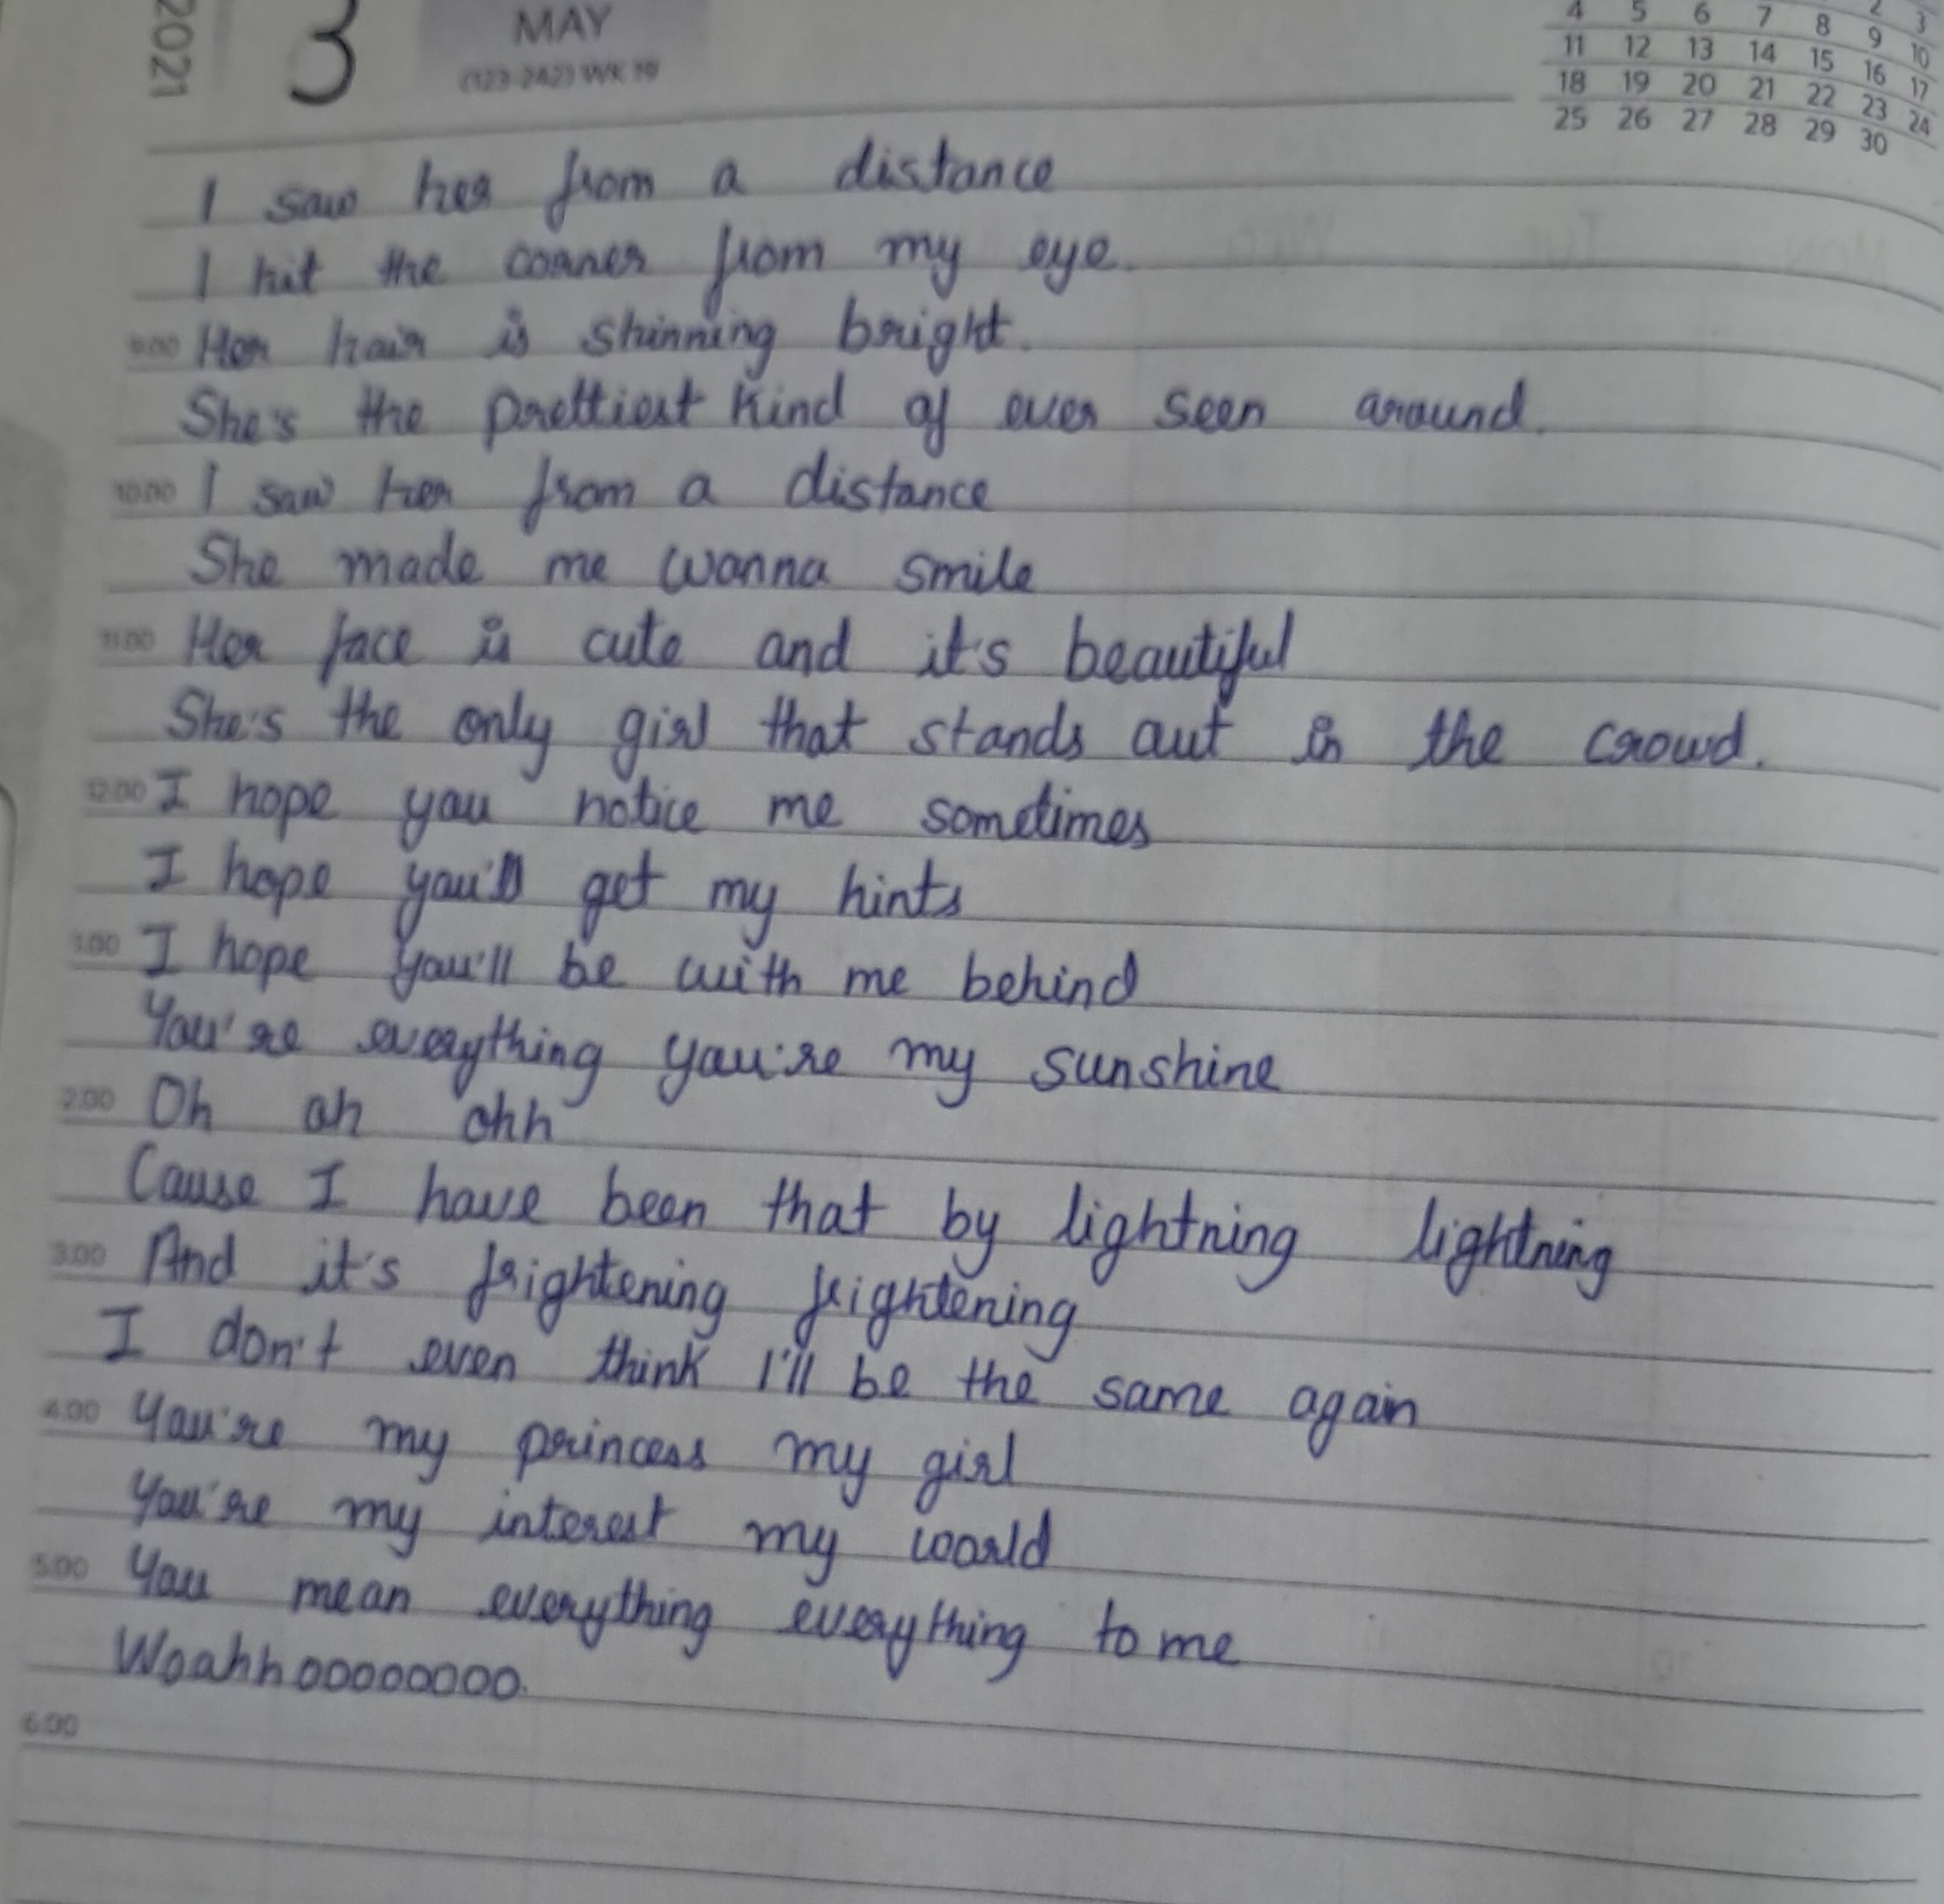 2021
3
MAY
(123-242) WK 19
2 3
4 5 6 7 8 9 10
11 12 13 14 15 16 17
18 19 20 21 22 23 24
25 26 27 28 29 30
I saw her from a distance
I hit the corner from my eye.
9.00 Her hair is shinning bright.
She's the prettiest kind of ever seen around.
10.00 I saw her from a distance
She made me wanna smile
11.00 Her face is cute and it's beautiful
She's the only girl that stands out in the crowd.
12.00 I hope you notice me sometimes
I hope you'll get my hints
1.00 I hope you'll be with me behind
You're everything you're my sunshine
2.00 Oh oh ohh
Cause I have been that by lightning lightning
3.00 And it's frightening frightening
I don't even think I'll be the same again
4.00 You're my princess my girl
You're my interest my world
5.00 You mean everything everything to me
Woahhoooooooo.
6.00